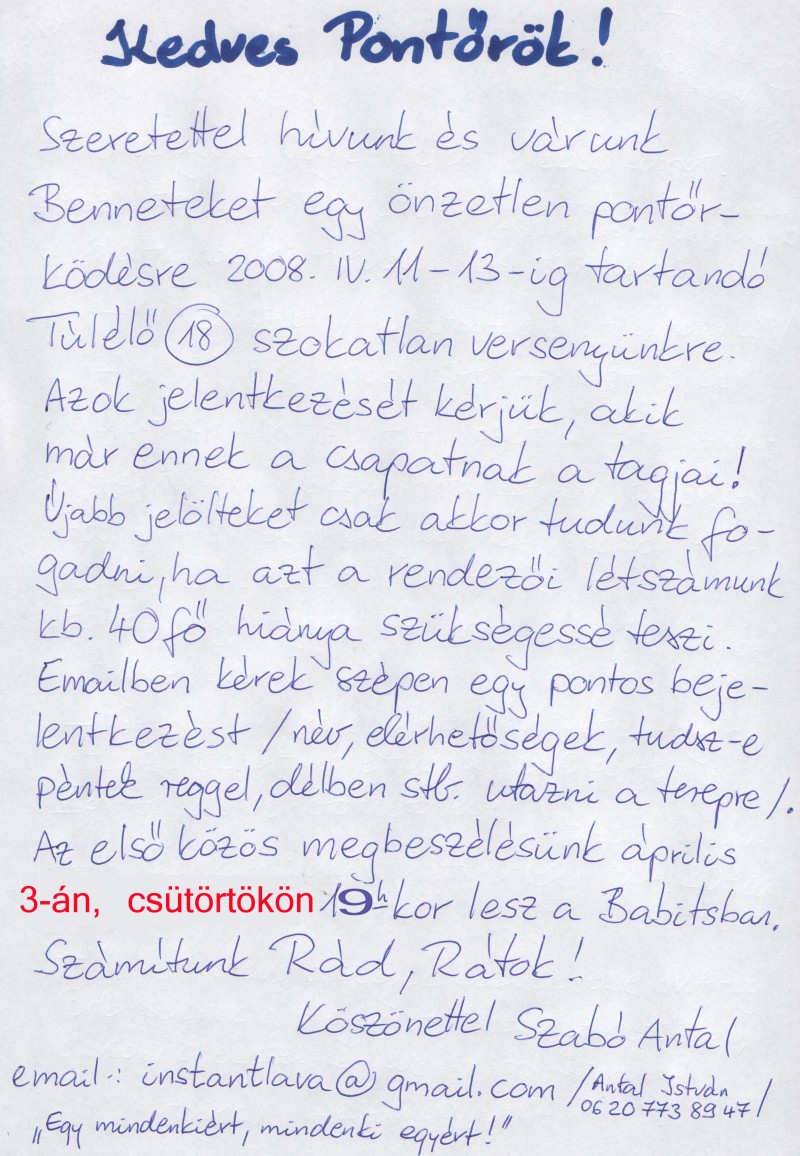 Kedves Pontőrök!
Szeretettel hívunk és várunk
Benneteket egy önzetlen pontőr-
ködésre 2008. IV. 11-13-ig tartandó
Túlélő 18 szokatlan versenyünkre.
Azok jelentkezését kérjük, akik
már ennek a csapatnak a tagjai!
Újabb jelölteket csak akkor tudunk fo-
gadni, ha azt a rendezői létszámunk
kb. 40 fő hiánya szükségessé teszi.
Emailben kérek szépen egy pontos beje-
lentkezést /név, elérhetőségek, tudsz-e
péntek reggel, délben stb. utazni a terepre/.
Az első közös megbeszélésünk április
3-án, csütörtökön 19h-kor lesz a Babitsban.
Számítunk Rád, Rátok!
Köszönettel Szabó Antal
email: instantlava@gmail.com /Antal István
06 20 773 89 47/
„Egy mindenkiért, mindenki egyért!"